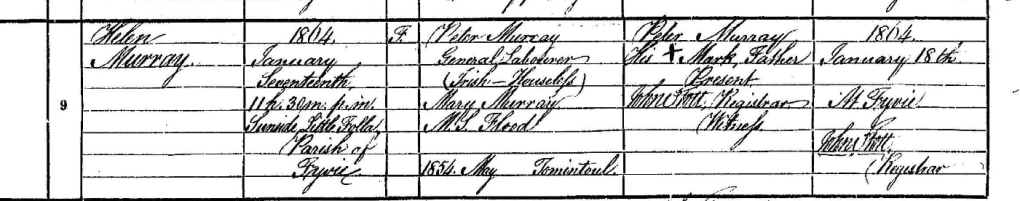 9
Helen
Murray
1864.
January
Seventeenth
11h. 30m. p.m.
Sunside, Little Folla,
Parish of
Fyvie
F.
Peter Murray
General Labourer
(Irish – Houseless)
Mary Murray
M.S. Flood
1854. May Tomintoul.
Peter Murray
His + Mark, Father
Present
John Stott, Registrar
(Witness.
1864.
January 18th
At Fyvie
John Stott
(Registrar